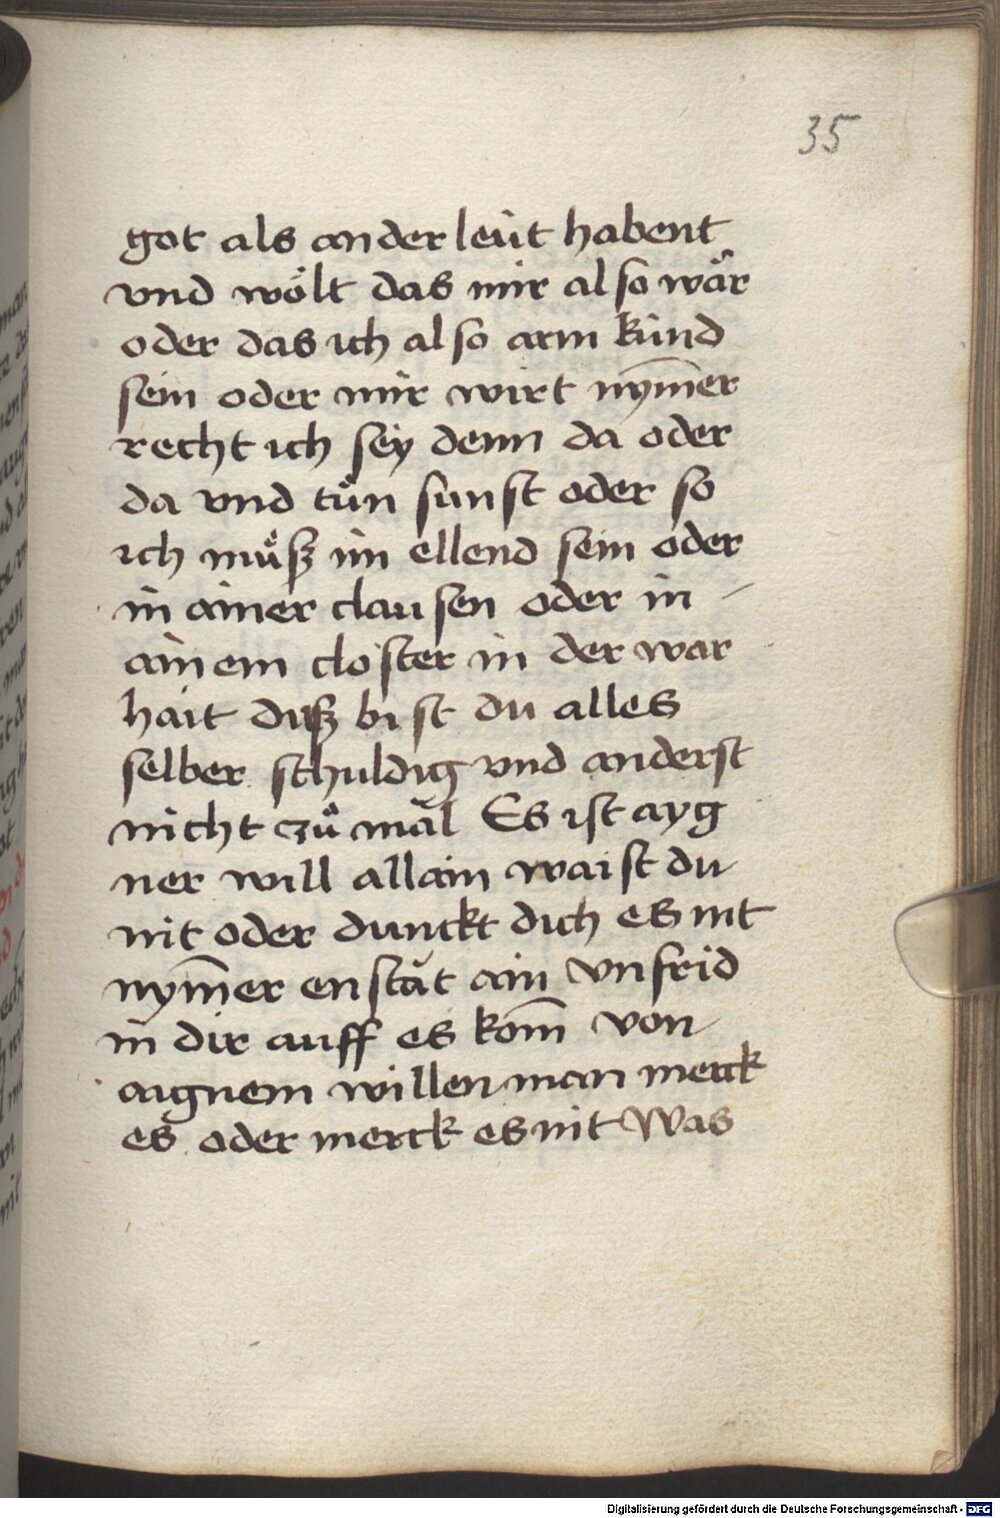 35
got als ander leüt habent
vnd wölt das mir also wår
oder das ich also arm künd
sein oder mir wirt nym̄er
recht ich sey denn da oder
da vnd tůn sunst oder so
ich můsz im ellend sein oder
in ainer clausen oder in
ainem closter in der war
hait disz bist du alles
selber schuldig vnd anderst
nicht zů mal Es ist ayg
ner will allain waist du
nit oder dunckt dich es nit
nym̄er enstät ain vnfrid
in dir auff es kom̄ von
aignem willen man merck
es oder merck es nit Was
Digitalisierung gefördert durch die Deutsche Forschungsgemeinschaft - DFG